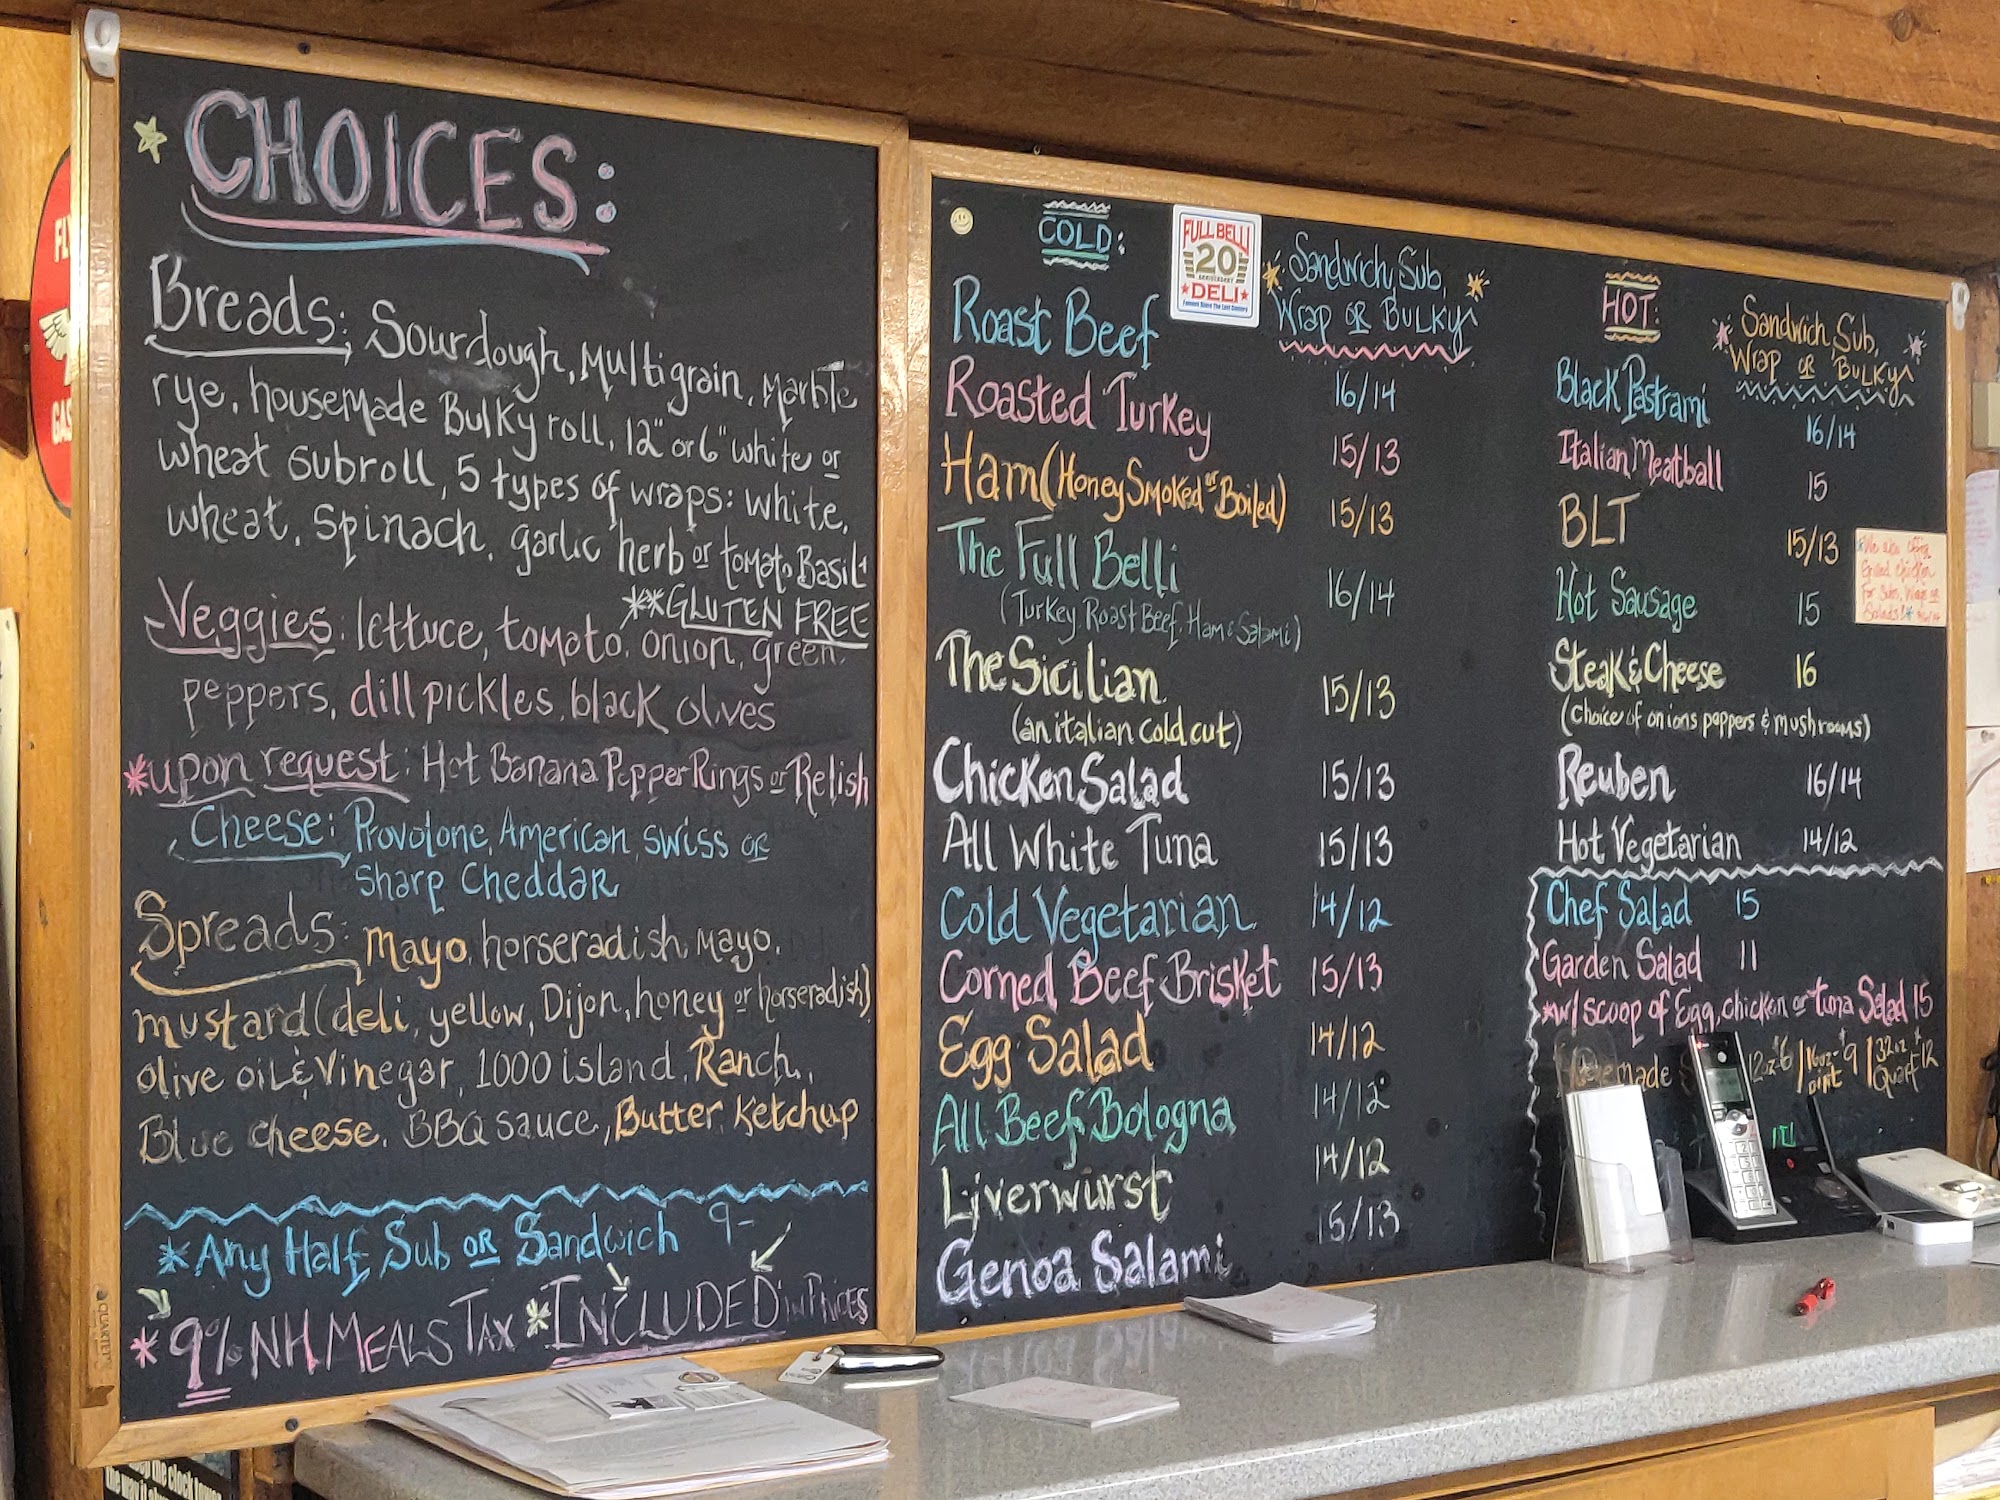 CHOICES:
Breads: Sourdough, Multigrain, Marble
rye, housemade Bulky roll, 12" or 6" white or
wheat subroll, 5 types of wraps: white,
wheat, spinach, garlic herb or tomato Basil
**GLUTEN FREE
Veggies: lettuce, tomato, onion, green
peppers, dill pickles, black olives
*upon request: Hot Banana Pepper Rings or Relish
Cheese: Provolone, American, swiss or
sharp Cheddar
Spreads: Mayo, horseradish mayo,
mustard (deli, yellow, Dijon, honey or horseradish)
olive oil & Vinegar, 1000 island, Ranch,
Blue cheese, BBQ sauce, Butter, Ketchup
*Any Half Sub or Sandwich 9-
*9% NH MEALS TAX *INCLUDED in PRICES
QUARTET
COLD:
FULL BELLI
20
ANNIVERSARY
DELI
Sandwich, Sub,
Wrap or Bulky
Roast Beef 16/14
Roasted Turkey 15/13
Ham (Honey Smoked or Boiled) 15/13
The Full Belli 16/14
(Turkey, Roast Beef, Ham & Salami)
The Sicilian 15/13
(an italian cold cut)
Chicken Salad 15/13
All White Tuna 15/13
Cold Vegetarian 14/12
Corned Beef Brisket 15/13
Egg Salad 14/12
All Beef Bologna 14/12
Liverwurst 14/12
Genoa Salami 15/13
HOT:
Sandwich, Sub,
Wrap or Bulky
Black Pastrami 16/14
Italian Meatball 15
BLT 15/13
Hot Sausage 15
Steak & Cheese 16
(choice of onions peppers & mushrooms)
Reuben 16/14
Hot Vegetarian 14/12
We also offer
Grilled chicken
for Subs, Wraps or
Salads! 16/14
Chef Salad 15
Garden Salad 11
*w/ scoop of Egg, chicken or tuna Salad 15
made 12oz 6 / 16oz pint 9 / 32oz Quart 12
the clock